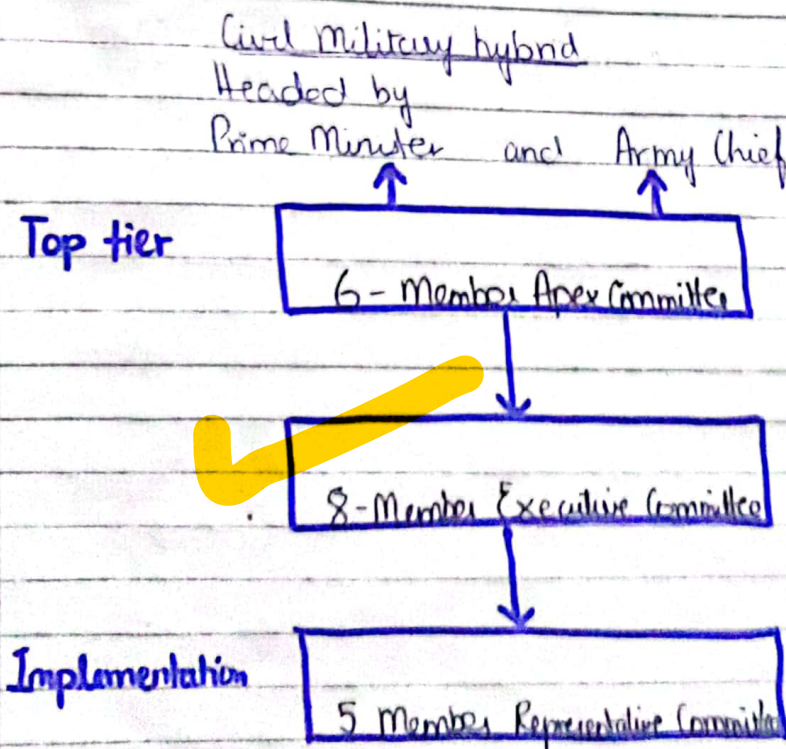 Civil Military hybrid
Headed by
Prime Minister and Army Chief
Top tier
6 - Member Apex Committee
8 - Member Executive Committee
Implementation
5 Member Representative Committee